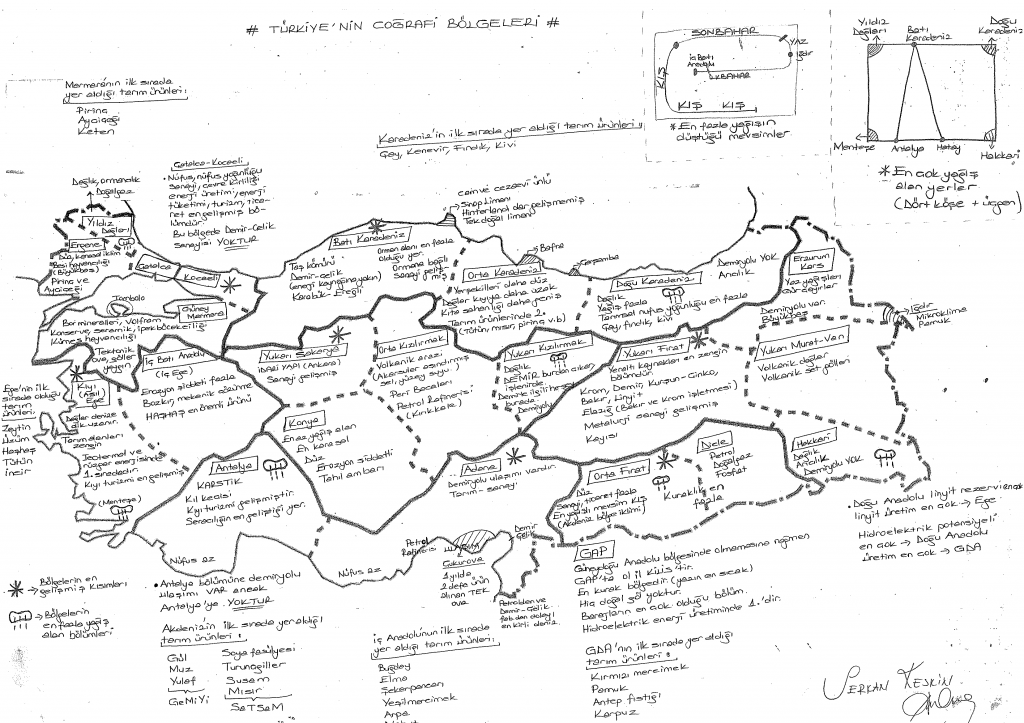 # TÜRKİYE'NİN COĞRAFİ BÖLGELERİ #
Marmara'nın ilk sırada
yer aldığı tarım ürünleri:
Pirinç
Ayçiçeği
Keten
Karadeniz'in ilk sırada yer aldığı tarım ürünleri:
Çay, Kenevir, Fındık, Kivi
SONBAHAR
YAZ
Iğdır
KIŞ
İç Batı
Anadolu
İLKBAHAR
KIŞ KIŞ
* En fazla yağışın
düştüğü mevsimler
Yıldız
Dağları
Batı
Karadeniz
Doğu
Karadeniz
Menteşe
Antalya
Hatay
Hakkari
* En çok yağış
alan yerler
(Dört köşe + üçgen)
Çatalca-Kocaeli
• Nüfus, nüfus yoğunluğu
sanayi, çevre kirliliği
enerji üretimi, enerji
tüketimi, turizm, tica-
ret en gelişmiş bö-
lümdür.
Bu bölgede Demir-Çelik
Sanayisi YOKTUR
Dağlık, ormanlık
Doğalgaz
Yıldız
Dağları
Ergene
(Büyükbaş)
Pirinç ve
Ayçiçeği
Çatalca
Kocaeli
Tombolo
Güney
Marmara
Bor mineralleri, Volfram
Konserve, seramik, ipek böcekçiliği
Kümes hayvancılığı
Tektonik
ova, göller
yaygın
cami ve cezaevi ünlü
Sinop Limanı
Hinterland dar gelişmemiş
Tek doğal liman
Batı Karadeniz
Taş kömürü
Demir-çelik
(enerji kaynağına yakın)
Karabük-Ereğli
Orman alanı en fazla
olduğu yer.
Ormana bağlı
sanayi geliş-
miş
Bafra
Çarşamba
Orta Karadeniz
Yerşekilleri daha düz
Dağlar kıyıya daha uzak
Kıta sahanlığı daha geniş
Tarım ürünlerinde 2.
(Tütün, mısır, pirinç v.b)
Doğu Karadeniz
Dağlık
Yağış fazla
Tarımsal nüfus yoğunluğu en fazla
Çay, fındık, kivi
Demiryolu YOK
Arıcılık
Erzurum
Kars
Yaz yağışları
Gür çayırlar
Demiryolu var.
Büyükbaş
Iğdır
Mikroklima
Pamuk
Ege'nin ilk
sırada olduğu
tarım
ürünleri:
Zeytin
Üzüm
Haşhaş
Tütün
İncir
Kıyı
(Asıl)
Ege
Dağlar denize
dik uzanır.
Tarım alanları
zengin
Jeotermal ve
rüzgar enerjisinde
1. sıradadır.
Kıyı turizmi en gelişmiş
(Menteşe)
İç Batı Anadolu
(İç Ege)
Erozyon şiddeti fazla
Bozkır, mekanik çözünme
HAŞHAŞ en önemli ürünü
Yukarı Sakarya
İDARİ YAPI (Ankara)
Sanayi gelişmiş
Orta Kızılırmak
Volkanik arazi
(Akarsular aşındırmış
sel, yüzey suyu)
Peri Bacaları
Petrol Rafinerisi
(Kırıkkale)
Yukarı Kızılırmak
Dağlık
DEMİR burdan çıkar,
işlenirde.
burada.
Demiryolu
Yukarı Fırat
Yeraltı kaynakları en zengin
bölümdür.
Krom, Demir, Kurşun-Çinko,
Bakır, Linyit
Elazığ (Bakır ve Krom işletmesi)
Metalurji sanayi gelişmiş
Kayısı
Yukarı Murat-Van
Volkanik dağlar
Volkanik set gölleri
Konya
En az yağış alan
En karasal
Düz
Erozyon şiddetli
Tahıl ambarı
Antalya
KARSTİK
Kıl keçisi
Kıyı turizmi gelişmiştir.
Seracılığın en geliştiği yer.
Adana
Demiryolu ulaşımı vardır.
Tarım-sanayi
Orta Fırat
Düz
Sanayi, ticaret fazla
En yağışlı mevsim KIŞ
(Akdeniz bölge iklimi)
Dicle
Petrol
Doğalgaz
Fosfat
Kuraklık en
fazla
Hakkari
Dağlık
Arıcılık
Demiryolu YOK
• Doğu Anadolu linyit rezervi ençok
linyit üretim en çok → Ege
Hidroelektrik potansiyeli
en çok → Doğu Anadolu
üretim en çok → GDA
→ Bölgelerin en
gelişmiş kısımları
→ Bölgelerin
en fazla yağış
alan bölümleri
Nüfus az
Nüfus az
• Antalya bölümüne demiryolu
ulaşımı VAR ancak
Antalya'ya YOKTUR
Akdeniz'in ilk sırada yer aldığı
tarım ürünleri:
Gül
Muz
Yulaf
GeMiYi
Soya fasülyesi
Turunçgiller
Susam
Mısır
SaTSaM
Petrol
Rafinerisi
Çukurova
1 yılda
2 defa ürün
alınan TEK
ova
Demir
Çelik
Petrolden ve
Demir-Çelik
fab. dan dolayı
en kirli deniz.
GAP
Güneydoğu Anadolu bölgesinde olmamasına rağmen
GAP'ta ol il KİLİS'tir.
En kurak bölgedir (yazın en sıcak)
Hiç doğal göl yoktur.
Barajların en çok olduğu bölüm.
Hidroelektrik enerji üretiminde 1.'dir.
İç Anadolu'nun ilk sırada
yer aldığı tarım ürünleri:
Buğday
Elma
Şekerpancarı
Yeşilmercimek
Arpa
GDA'nın ilk sırada yer aldığı
tarım ürünleri:
Kırmızı mercimek
Pamuk
Antep fıstığı
Karpuz
SERKAN KESKİN